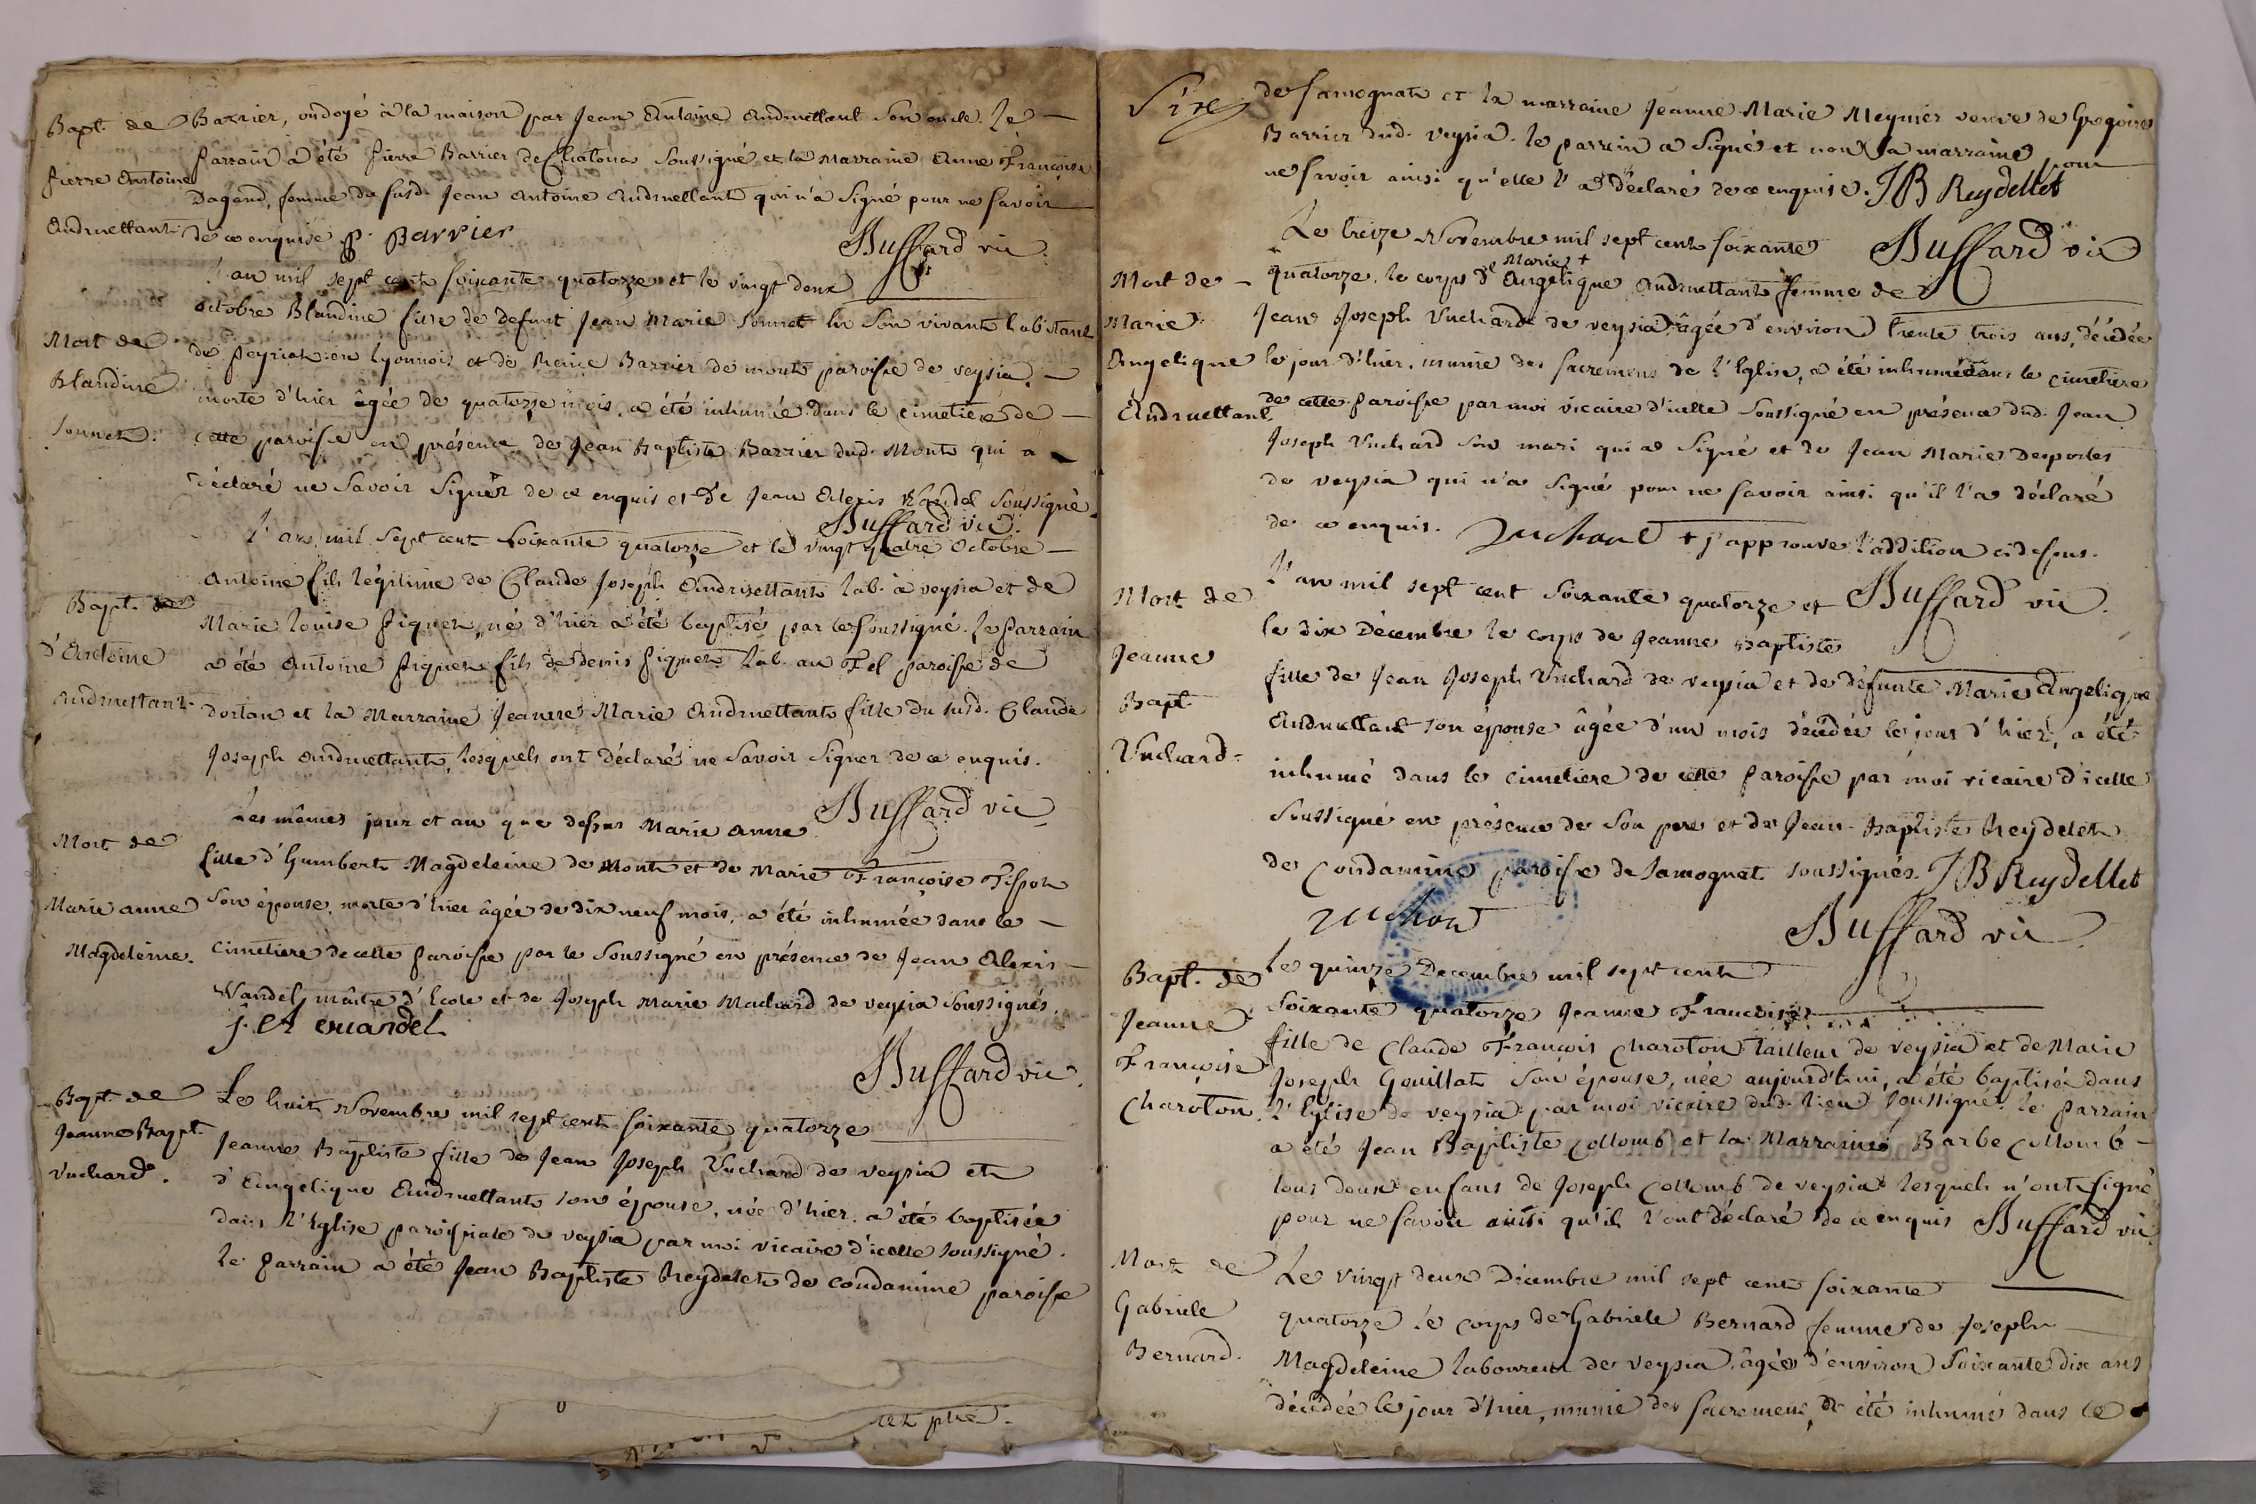 Bapt. de
Pierre Antoine
Andruettant
Barrier, ondoyé à la maison par Jean Antoine Andruettant son oncle. Le
Parrain a été Pierre Barrier de Chatona soussigné et la Marraine Anne Françoise
Dagand, femme du susd. Jean Antoine Andruettant qui n'a signé pour ne savoir
de ce enquise P. Barrier
Buffard vic
Mort de
Blandine
Sonnet.
L'an mil sept cent soixante quatorze et le vingt deux
octobre Blandine fille de defunt Jean Marie Sonnet en son vivant habitant
de Peyriat en lyonnois et de Reine Barrier de mont paroisse de veysia,
morte d'hier âgée de quatorze mois, a été inhumée dans le cimetiere de
cette paroisse en présence de Jean Baptiste Barrier dud. Mont qui a
déclaré ne savoir signer de ce enquis et de Jean Alexis Vandel soussigné.
Buffard vic.
Bapt. de
d'Antoine
Andruettant
L'an mil sept cent soixante quatorze et le vingt quatre Octobre
Antoine fils légitime de Claude Joseph Andruettant lab. à veysia et de
Marie Louise Piquet, né d'hier a été baptisé par le soussigné. Le Parrain
a été Antoine Piquet fils de denis Piquet lab. au Fol paroisse de
dortan et la Marraine Jeanne Marie Andruettant fille du susd. Claude
Joseph Andruettant, lesquels ont déclarés ne savoir signer de ce enquis.
Buffard vic
Mort de
Marie anne
Magdeleine.
Les mêmes jour et an que dessus Marie Anne
fille d'Humbert Magdeleine de Mont et de Marie Françoise
son épouse, morte d'hier âgée de dix neuf mois, a été inhumée dans le
cimetiere de cette Paroisse par le soussigné en présence de Jean Alexis
Vandel, maître d'Ecole et de Joseph Marie Muchard de veysia soussignés.
Buffard vic.
Bapt. de
Jeanne Bapt.
Vuchard.
Le huit Novembre mil sept cent soixante quatorze
Jeanne Baptiste fille de Jean Joseph Vuchard de veysia et
d'Angélique Andruettant son épouse, née d'hier, a été baptisée
dans l'Eglise paroissiale de veysia par moi vicaire d'icelle soussigné.
le Parrain a été Jean Baptiste Reydelet de condamine paroisse
de samognat et la marraine Jeanne Marie Meynier veuve de Gregoire
Barrier dud. veysia. le parrein a signé et non la marraine pour
ne savoir ainsi qu'elle l'a déclaré de ce enquise. J B Reydellet
Buffard vic
Mort de
Marie
Angelique
Andruettant
Le treize Novembre mil sept cent soixante
quatorze, le corps de Marie + Angélique Andruettant femme de
Jean Joseph Vuchard de veysia, âgée d'environ trente trois ans, décédée
le jour d'hier, munie des sacremens de l'Eglise, a été inhumé dans le cimetiere
de cette paroisse par moi vicaire d'icelle soussigné en présence dud. Jean
Joseph Vuchard son mari qui a signé et de Jean Marie Desportes
de veysia qui n'a signé pour ne savoir ainsi qu'il l'a déclaré
de ce enquis. + j'approuve l'addition ci dessus.
Buffard vic.
Mort de
Jeanne
Bapt.
Vuchard
L'an mil sept cent soixante quatorze et
le dix Décembre le corps de Jeanne Baptiste
fille de Jean Joseph Vuchard de veysia et de défunte Marie Angelique
Andruettant son épouse âgée d'un mois décédée le jour d'hier, a été
inhumé dans le cimetiere de cette paroisse par moi vicaire d'icelle
soussigné en présence de son pere et de Jean Baptiste Reydelet
de Condamine paroisse de Samognat soussignés. J B Reydellet
Buffard vic
Bapt. de
Jeanne
Françoise
Charoton.
Le quinze Decembre mil sept cent
soixante quatorze Jeanne Françoise
fille de Claude François Charoton tailleur de veysia et de Marie
Joseph Gouillat son épouse, née aujourd'hui, a été baptisée dans
l'Eglise de veysia par moi vicaire dud. lieu soussigné. le Parrain
a été Jean Baptiste Collomb et la Marraine Barbe Collomb
tous deux enfans de Joseph Collomb de veysia lesquels n'ont signé
pour ne savoir ainsi qu'ils l'ont déclaré de ce enquis Buffard vic
Mort de
Gabriele
Bernard.
Le vingt deux Décembre mil sept cent soixante
quatorze le corps de Gabriele Bernard femme de Joseph
Magdeleine laboureur de veysia, âgée d'environ soixante dix ans
décédée le jour d'hier, munie des sacremens, a été inhumé dans le